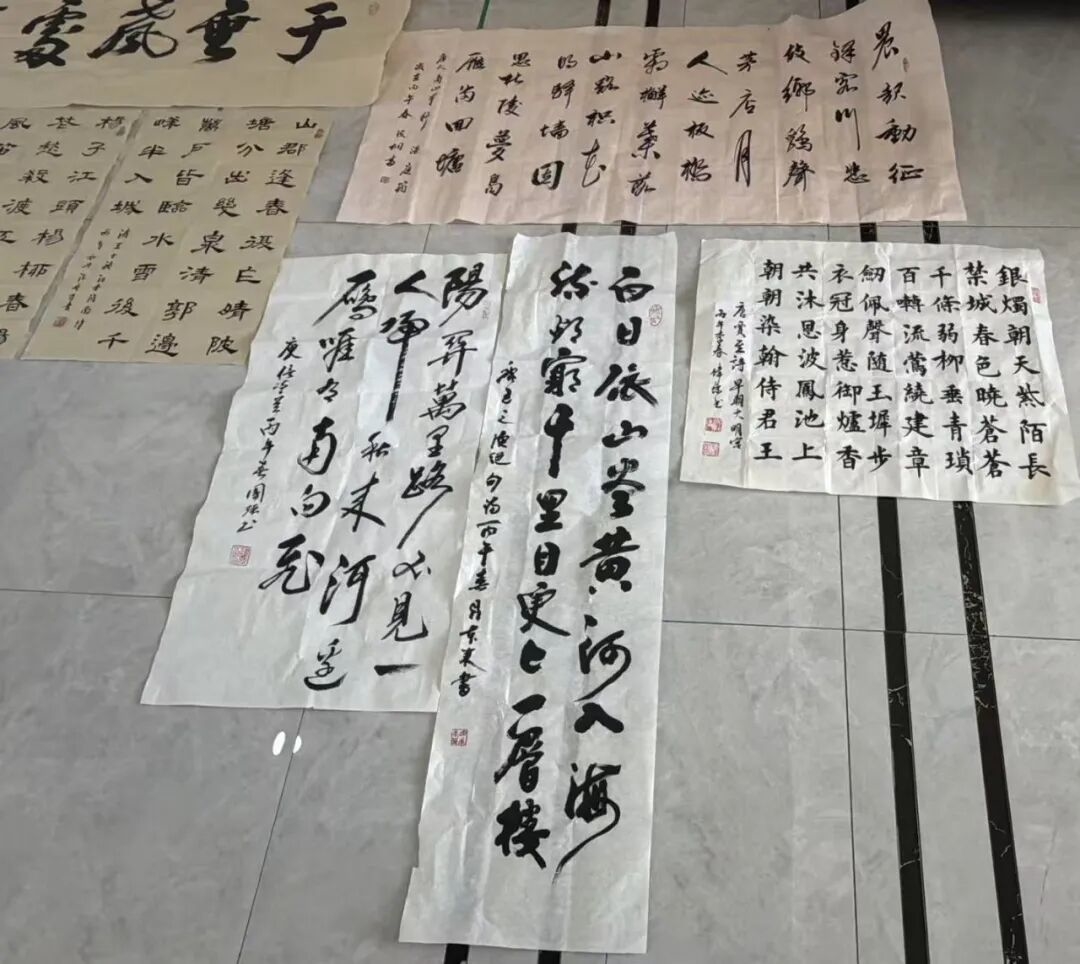 于無聲處
晨起動征
鐸客行悲
故鄉雞聲
茅店月
人迹板橋
霜槲葉落
山路枳花
明驛墙因
思杜陵夢鳧
雁滿回塘
山郡逢春復乍晴陂
塘分出幾泉清郭邊
萬戶皆臨水雪後千
峰半入城
楊子江頭楊柳春
花愁殺渡江
銀燭朝天紫陌長
禁城春色曉蒼蒼
千條弱柳垂青瑣
百囀流鶯繞建章
劒佩聲隨玉墀步
衣冠身惹御爐香
共沐恩波鳳池上
朝朝染翰侍君王
唐賈至詩早朝大明宮
丙午年春
白日依山盡黃河入海
流欲窮千里目更上一層樓
丙午春月東来書
陽關萬里路不見一
人歸秋来河邊
雁唯有南向飛
丙午春國強書